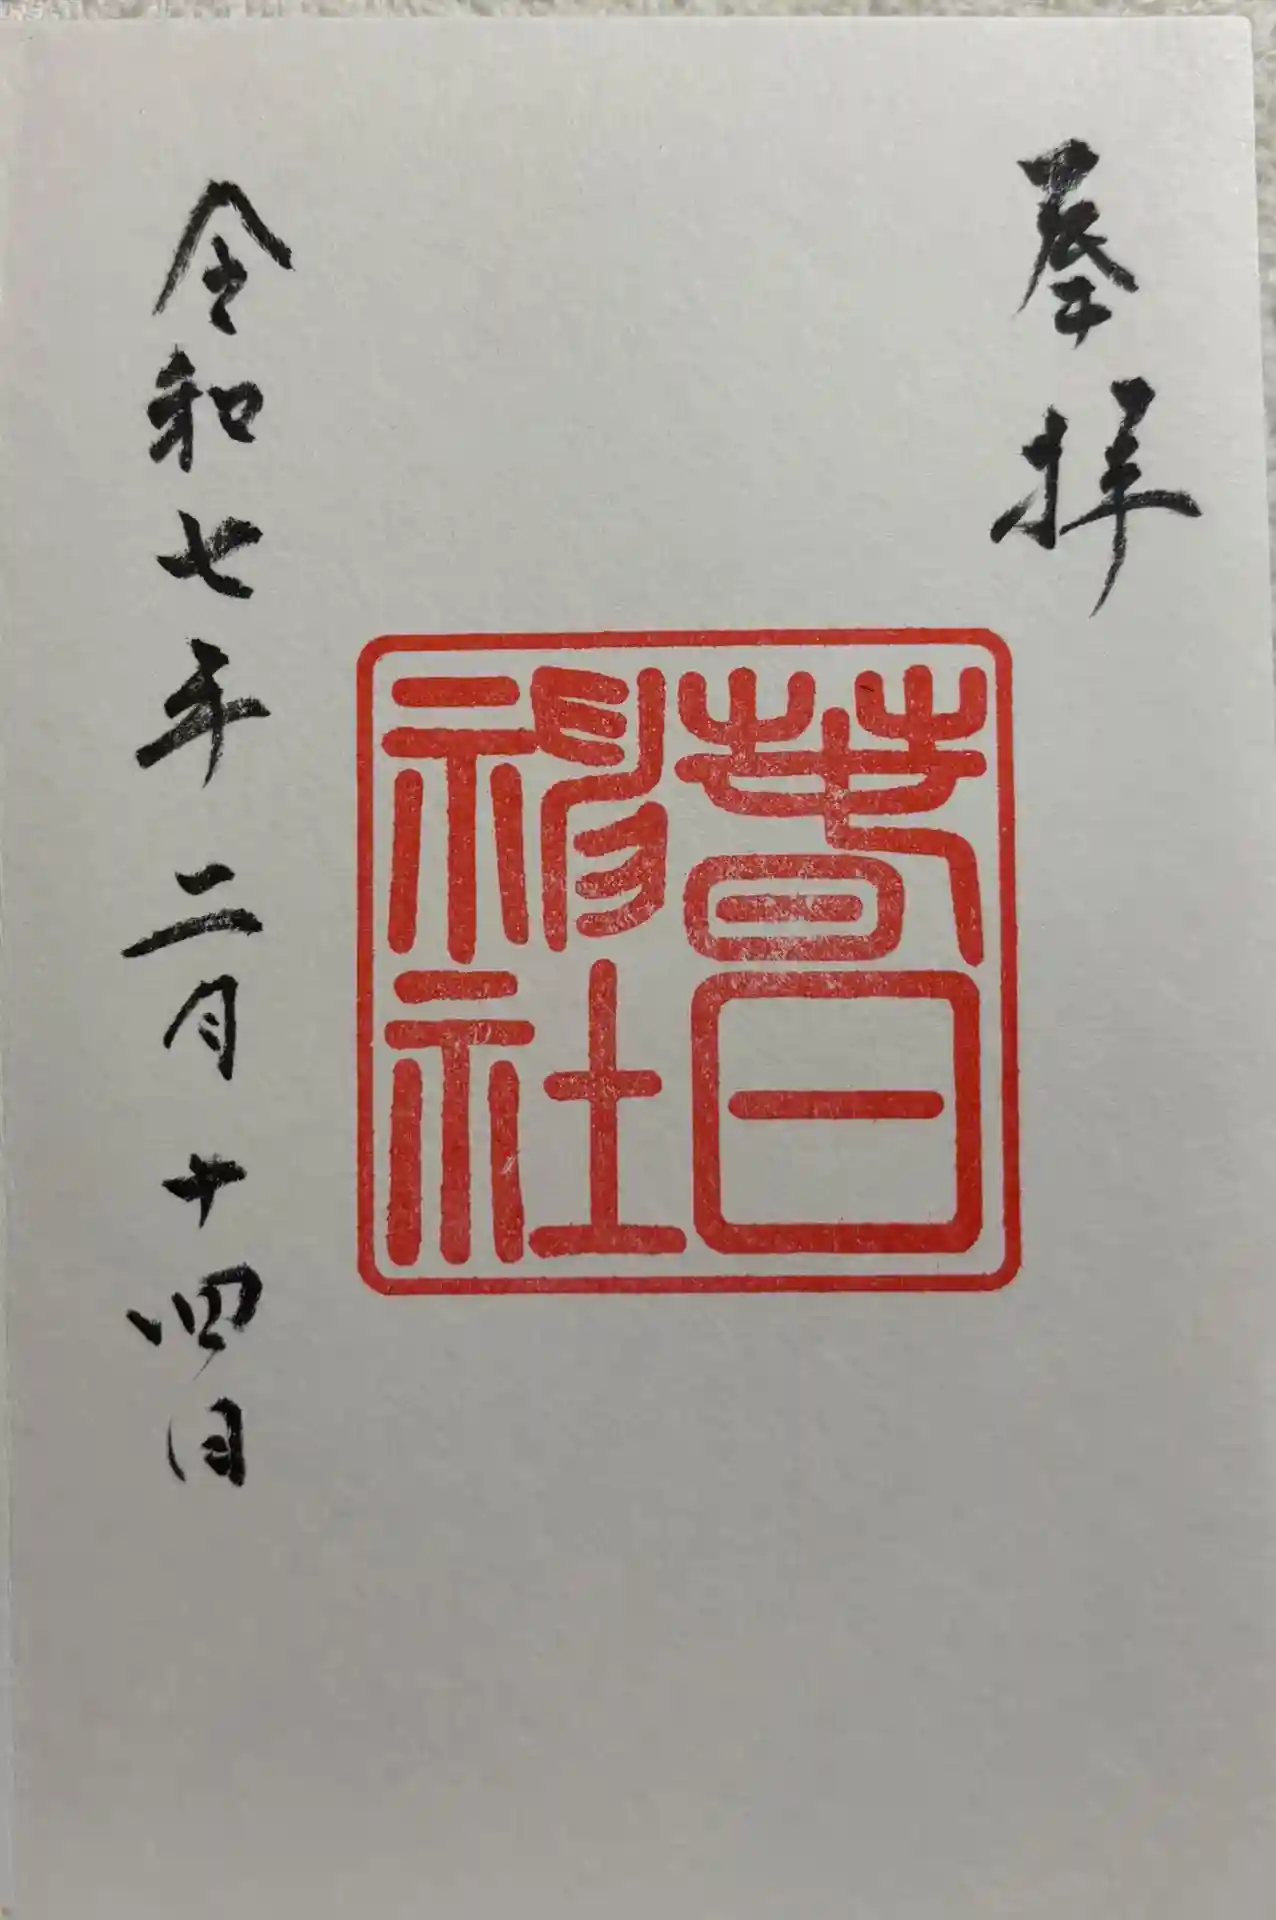 奉拝
春日
神社
令和七年二月十四日